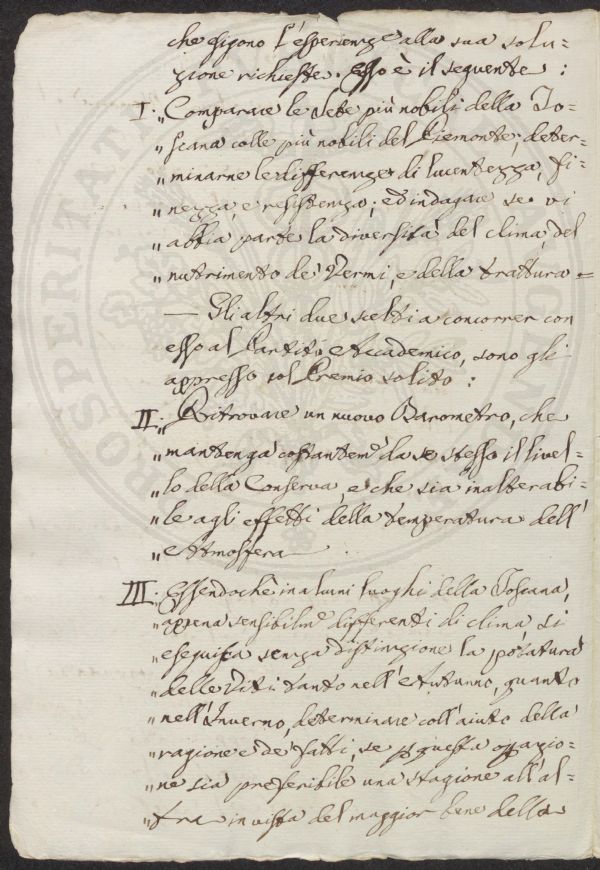 che sigono l'esperienze alla sua solu=
zione richieste. Esso è il seguente :
I. „ Comparare le Sete più nobili della To=
„ scana colle più nobili del Piemonte, deter=
„ minarne le differenze di lucentezza, fi=
„ nezza, e resistenza; ed indagare se vi
„ abbia parte la diversità del clima, del
„ nutrimento de' Vermi, e della trattura =
— Gli altri due scelti a concorrer con
esso al Partito Accademico, sono gli
appresso sol Premio solito :
II. „ Ritrovare un nuovo Barometro, che
„ mantenga costantem.e da se stesso il livel=
„ lo della Conserva, e che sia inalterabi=
„ le agli effetti della temperatura dell'
„ Atmosfera
III. Essendochè in alcuni luoghi della Toscana,
„ appena sensibilm.e differenti di clima, si
„ eseguisca senza distinzione la potatura
„ delle Viti tanto nell'Autunno, quanto
„ nell'Inverno, determinare coll'aiuto della
„ ragione e de' fatti, se p questa oppazio=
„ ne sia preferibile una stagione all'al=
„ tra in vista del maggior bene della
PROSPERITATI